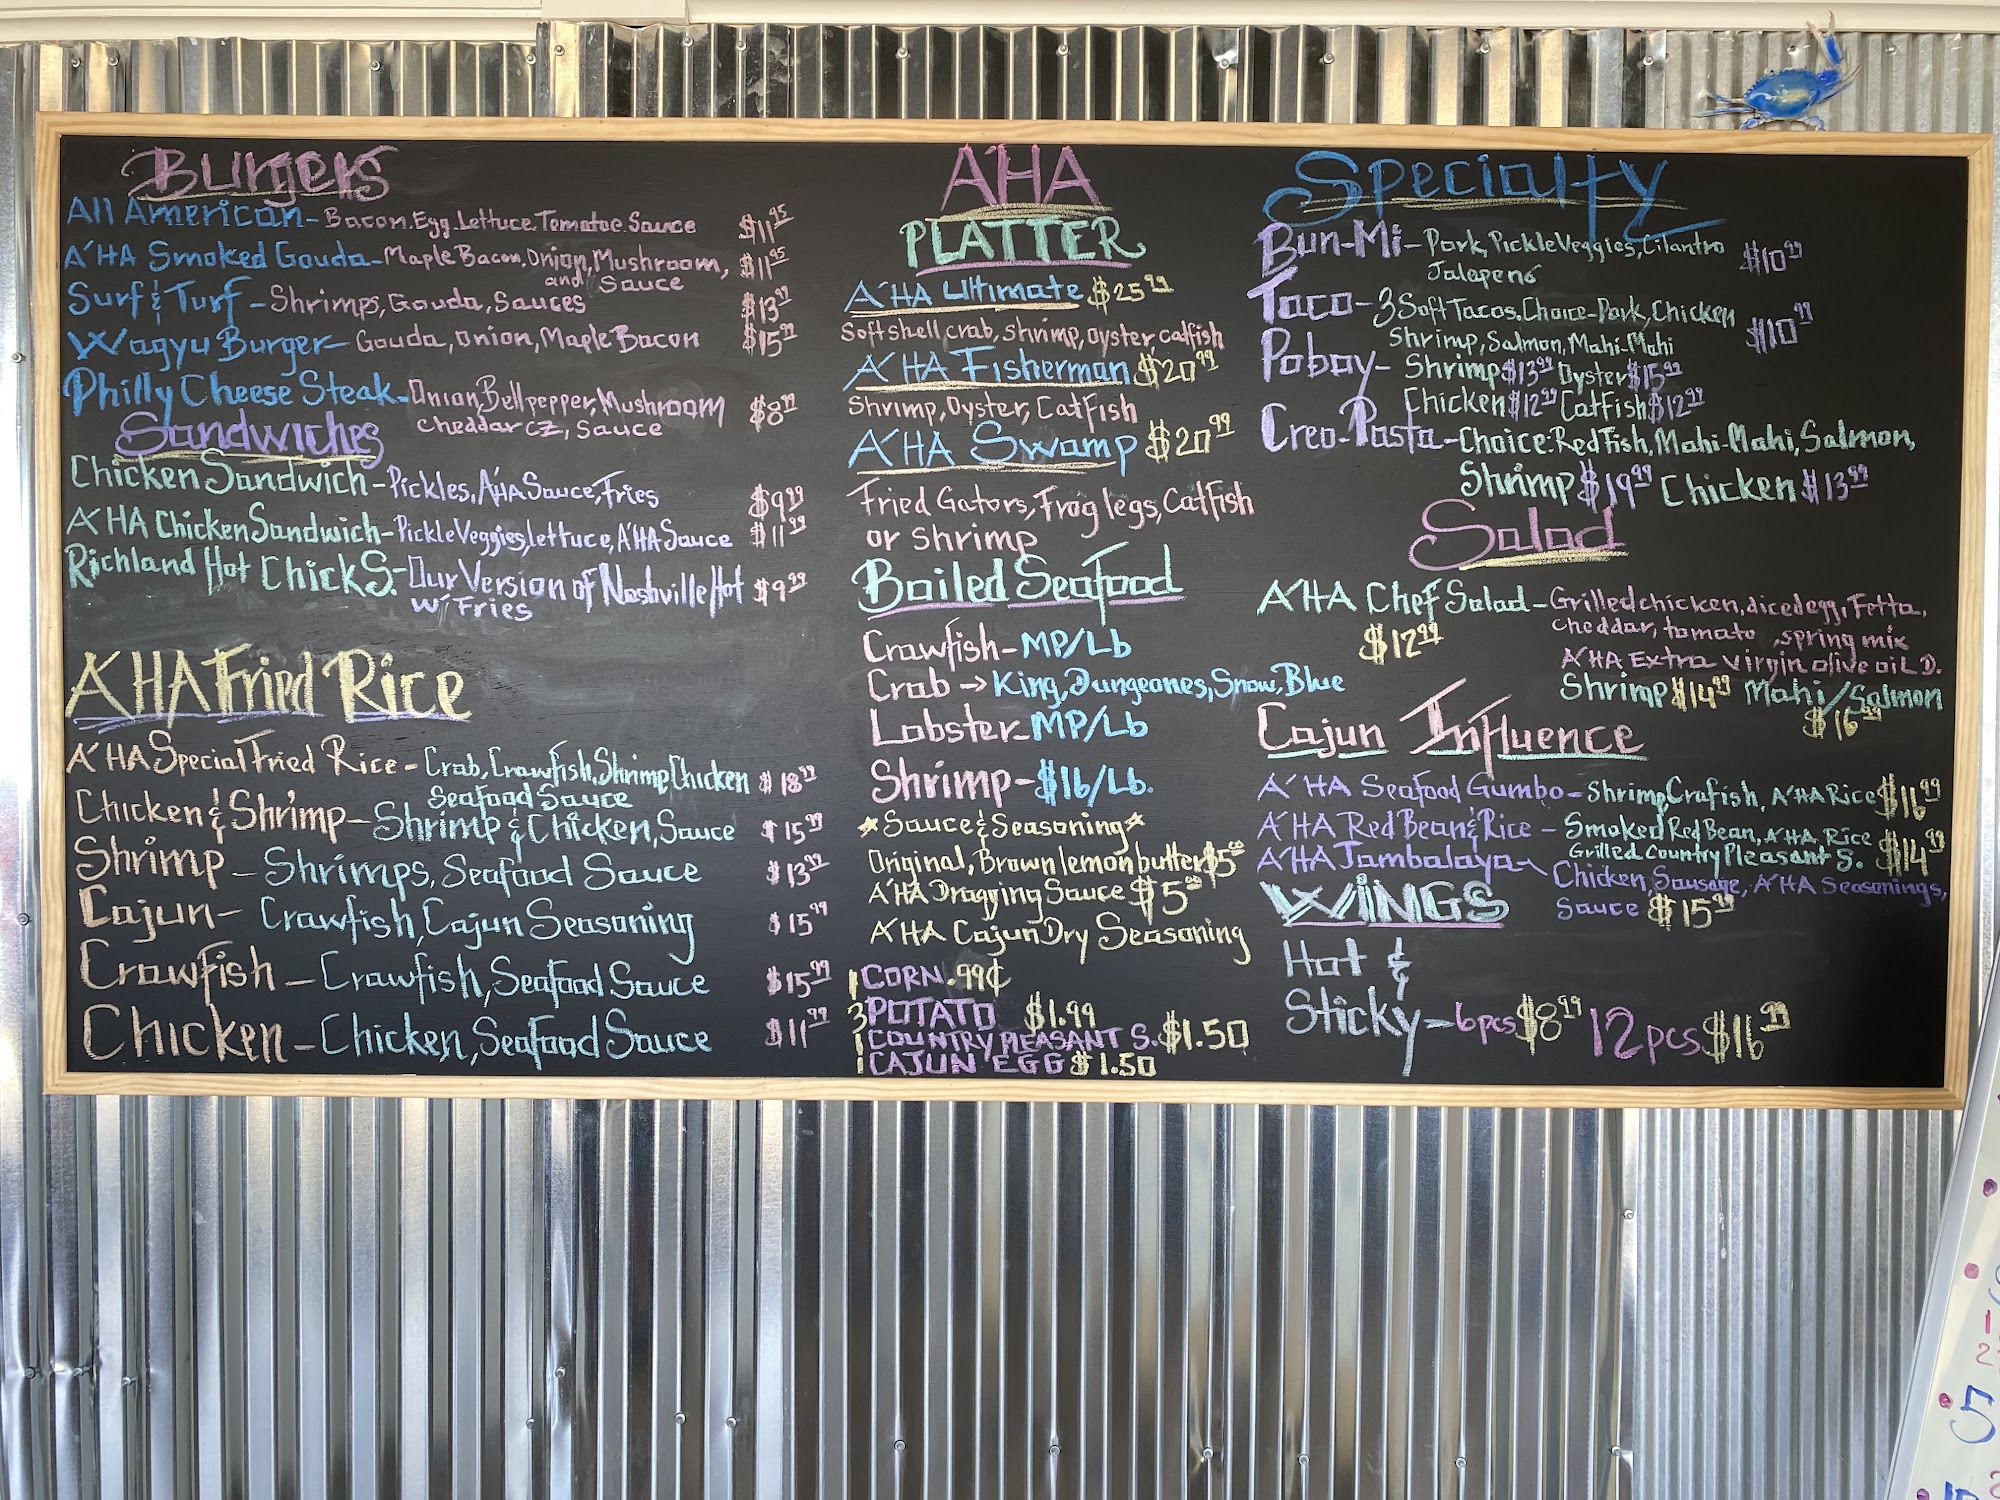 Burgers
All American - Bacon. Egg. Lettuce. Tomatoe. Sauce $11.95
A'HA Smoked Gouda - Maple Bacon, Onion, Mushroom, and Sauce $11.95
Surf & Turf - Shrimps, Gouda, Sauces $13.99
Wagyu Burger - Gouda, Onion, Maple Bacon $15.99
Philly Cheese Steak - Onion, Bellpepper, Mushroom
cheddar cz, Sauce $8.99
Sandwiches
Chicken Sandwich - Pickles, A'HA Sauce, Fries $9.99
A'HA Chicken Sandwich - Pickle Veggies, lettuce, A'HA Sauce $11.99
Richland Hot Chicks. - Our Version of Nashville Hot
w/ Fries $9.99
A'HA Fried Rice
A'HA Special Fried Rice - Crab, Crawfish, Shrimp, Chicken
Seafood Sauce $18.99
Chicken & Shrimp - Shrimp & Chicken, Sauce $15.99
Shrimp - Shrimps, Seafood Sauce $13.99
Cajun - Crawfish, Cajun Seasoning $15.99
Crawfish - Crawfish, Seafood Sauce $15.99
Chicken - Chicken, Seafood Sauce $11.99
A'HA
PLATTER
A'HA Ultimate $25.99
Softshell crab, shrimp, oyster, catfish
A'HA Fisherman $20.99
Shrimp, Oyster, Catfish
A'HA Swamp $20.99
Fried Gators, Frog legs, Catfish
or Shrimp
Boiled Seafood
Crawfish - MP/Lb
Crab → King, Dungeones, Snow, Blue
Lobster - MP/Lb
Shrimp - $16/Lb.
*Sauce & Seasoning*
Original, Brown lemon butter $5.00
A'HA Dragging Sauce $5.00
A'HA Cajun Dry Seasoning
1 CORN .99¢
3 POTATO $1.99
1 COUNTRY PLEASANT S. $1.50
1 CAJUN EGG $1.50
Specialty
Bun-Mi - Pork, Pickle Veggies, Cilantro
Jalapeno $10.99
Taco - 3 Soft Tacos. Choice - Pork, Chicken
Shrimp, Salmon, Mahi-Mahi $10.99
Poboy - Shrimp $13.99 Oyster $15.99
Chicken $12.99 Catfish $12.99
Creo-Pasta - Choice: Red Fish, Mahi-Mahi, Salmon,
Shrimp $19.99 Chicken $13.99
Salad
A'HA Chef Salad - Grilled chicken, diced egg, Fetta,
cheddar, tomato, spring mix
$12.99 A'HA Extra virgin olive oil D.
Shrimp $14.99 Mahi/Salmon
$16.99
Cajun Influence
A'HA Seafood Gumbo - Shrimp, Crafish, A'HA Rice $16.99
A'HA Red Bean & Rice - Smoked Red Bean, A'HA Rice
Grilled Country Pleasant S. $14.99
A'HA Jambalaya - Chicken, Sausage, A'HA Seasonings,
Sauce $15.99
WINGS
Hot &
Sticky - 6pcs $8.99 12pcs $16.99